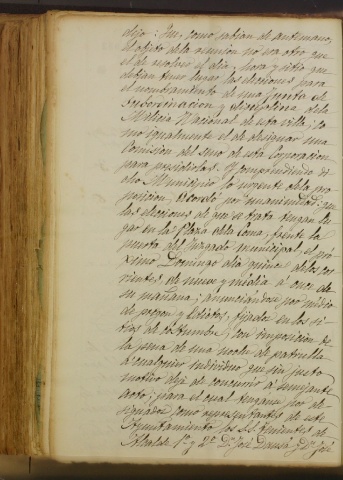 dijo: Que, como sabian de antemano,
el objeto de la reunion no era otro que
el de acordar el dia, hora y sitio que
debian tener lugar las elecciones para
el nombramiento de una Junta de
subordinacion y disciplina de la
Milicia Nacional de esta villa; co-
mo igualmente el de designar una
Comision del seno de esta Corporacion
para presidirlas. Y comprendiendo di-
cho Municipio lo urgente de la pro-
posicion, Acordó por unanimidad: que
las elecciones de que se trata tengan lu-
gar en la Plaza de la Loma, frente la
puerta del Juzgado municipal, el pró-
ximo Domingo dia quince de los cor-
rientes, de nueve y média á once de
su mañana; anunciándose por médio
de pregon y Edictos, fijados en los si-
tios de costumbre, con imposicion de
la pena de una noche de patrulla
á cualquier individuo que sin justo
motivo deje de concurrir á semejante
acto; para el cual tengan por de-
signados como representantes de este
Ayuntamiento los S.S. tenientes de
Alcalde 1º y 2º Dn José y Dn José